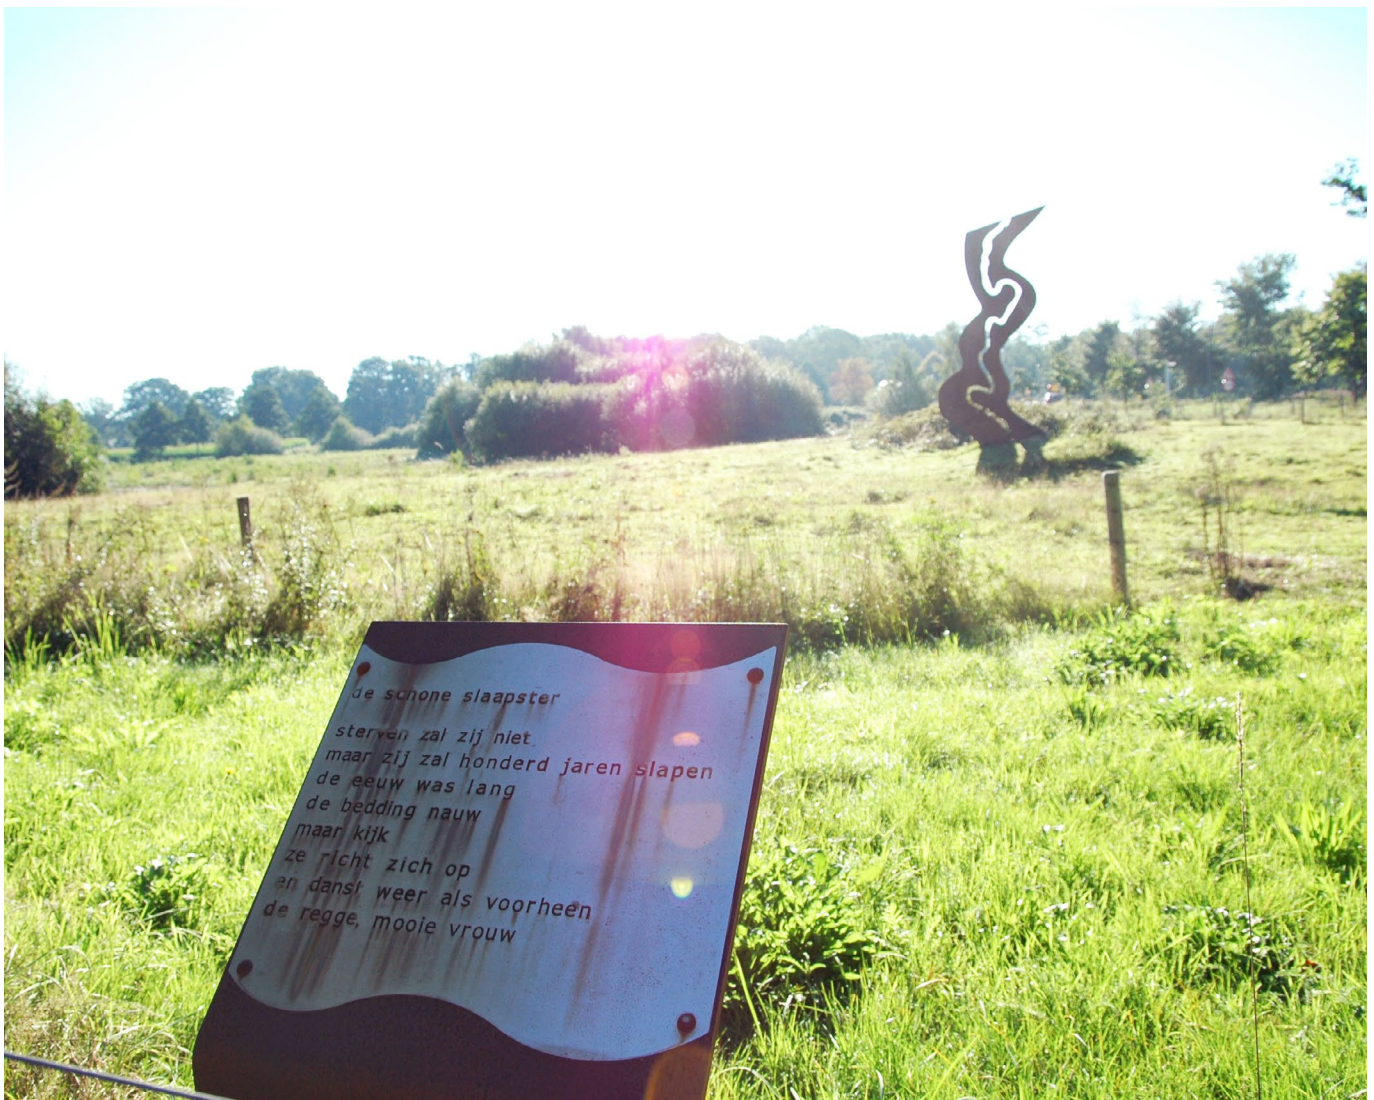 de schone slaapster
sterven zal zij niet
maar zij zal honderd jaren slapen
de eeuw was lang
de bedding nauw
maar kijk
ze richt zich op
en danst weer als voorheen
de regge, mooie vrouw